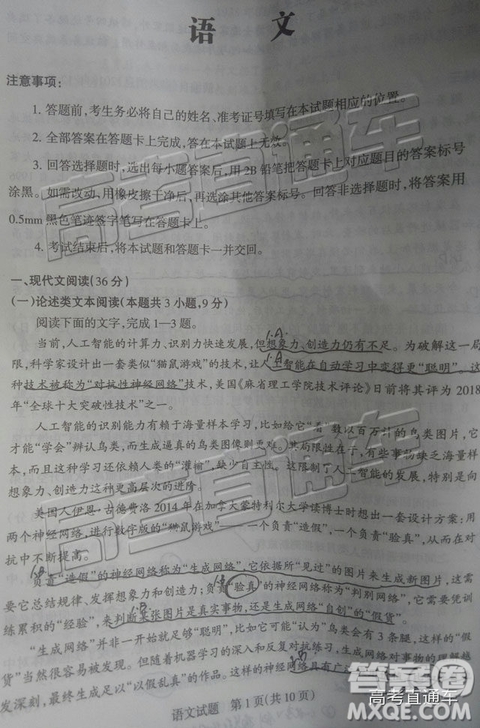 语 文
注意事项:
1. 答题前,考生务必将自己的姓名、准考证号填写在本试题相应的位置。
2. 全部答案在答题卡上完成,答在本试题上无效。
3. 回答选择题时,选出每小题答案后,用 2B 铅笔把答题卡上对应题目的答案标号
涂黑。如需改动,用橡皮擦干净后,再选涂其他答案标号。回答非选择题时,将答案用
0.5mm 黑色笔迹签字笔写在答题卡上。
4. 考试结束后,将本试题和答题卡一并交回。
一、现代文阅读(36 分)
(一)论述类文本阅读(本题共 3 小题,9 分)
阅读下面的文字,完成 1—3 题。
当前,人工智能的计算力、识别力快速发展,但想象力、创造力仍有不足。为破解这一局
限,科学家设计出一套类似“猫鼠游戏”的技术,让人工智能在自动学习中变得更“聪明”。这
种技术被称为“对抗性神经网络”技术,美国《麻省理工学院技术评论》日前将其评为 2018
年“全球十大突破性技术”之一。
人工智能的识别能力有赖于海量样本学习,比如它在“看”数以百万计的鸟类图片,它
才能“学会”辨认鸟类,而生成逼真的鸟类图像则更难。
本而且这种学习还依赖人类的“灌输”,缺少自主性。这限制了人工智能的发展,特别是向
想象力、创造力这种更高层次的进阶。
美国人伊恩·古德费洛 2014 年在加拿大蒙特利尔大学读博士时想出一套设计方案:用
两个神经网络,进行数字版的“猫鼠游戏”——一个负责“造假”,一个负责“验真”,从而在对
抗中不断提高。
负责“造假”的神经网络称为“生成网络”,它依据所“见过”的图片来生成新图片,这需
要它总结规律、发挥想象力和创造力;负责“验真”的神经网络称为“判别网络”,它需要凭训
练累积的“经验”,来判断某张图片是真实事物,还是生成网络“自创”的“假货”。
“生成网络”并非一开始就足够“聪明”,比如它可能“认为”鸟类会有 3 条腿,这样的“假
货”当然很容易被发现。但随着机器学习的深入和反复对抗练习,生成网络对事物的理解越
发深刻,最终生成足以“以假乱真”的作品。这样的神经网络具有
语文试题 第 1 页(共 10 页)
高考直通车
答案圈
MXQE.COM
高考直通车